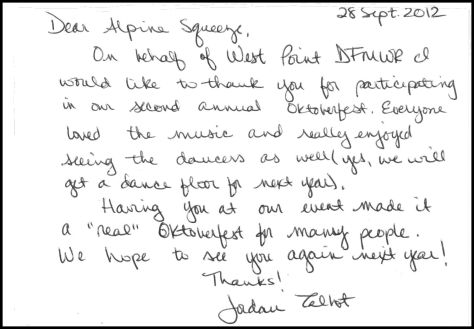 28 Sept. 2012
Dear Alpine Squeeze,
On behalf of West Point DFMWR I
would like to thank you for participating
in our second annual Oktoberfest. Everyone
loved the music and really enjoyed
seeing the dancers as well (yes, we will
get a dance floor for next year).
Having you at our event made it
a "real" Oktoberfest for many people.
We hope to see you again next year!
Thanks!
Jordan Talbot